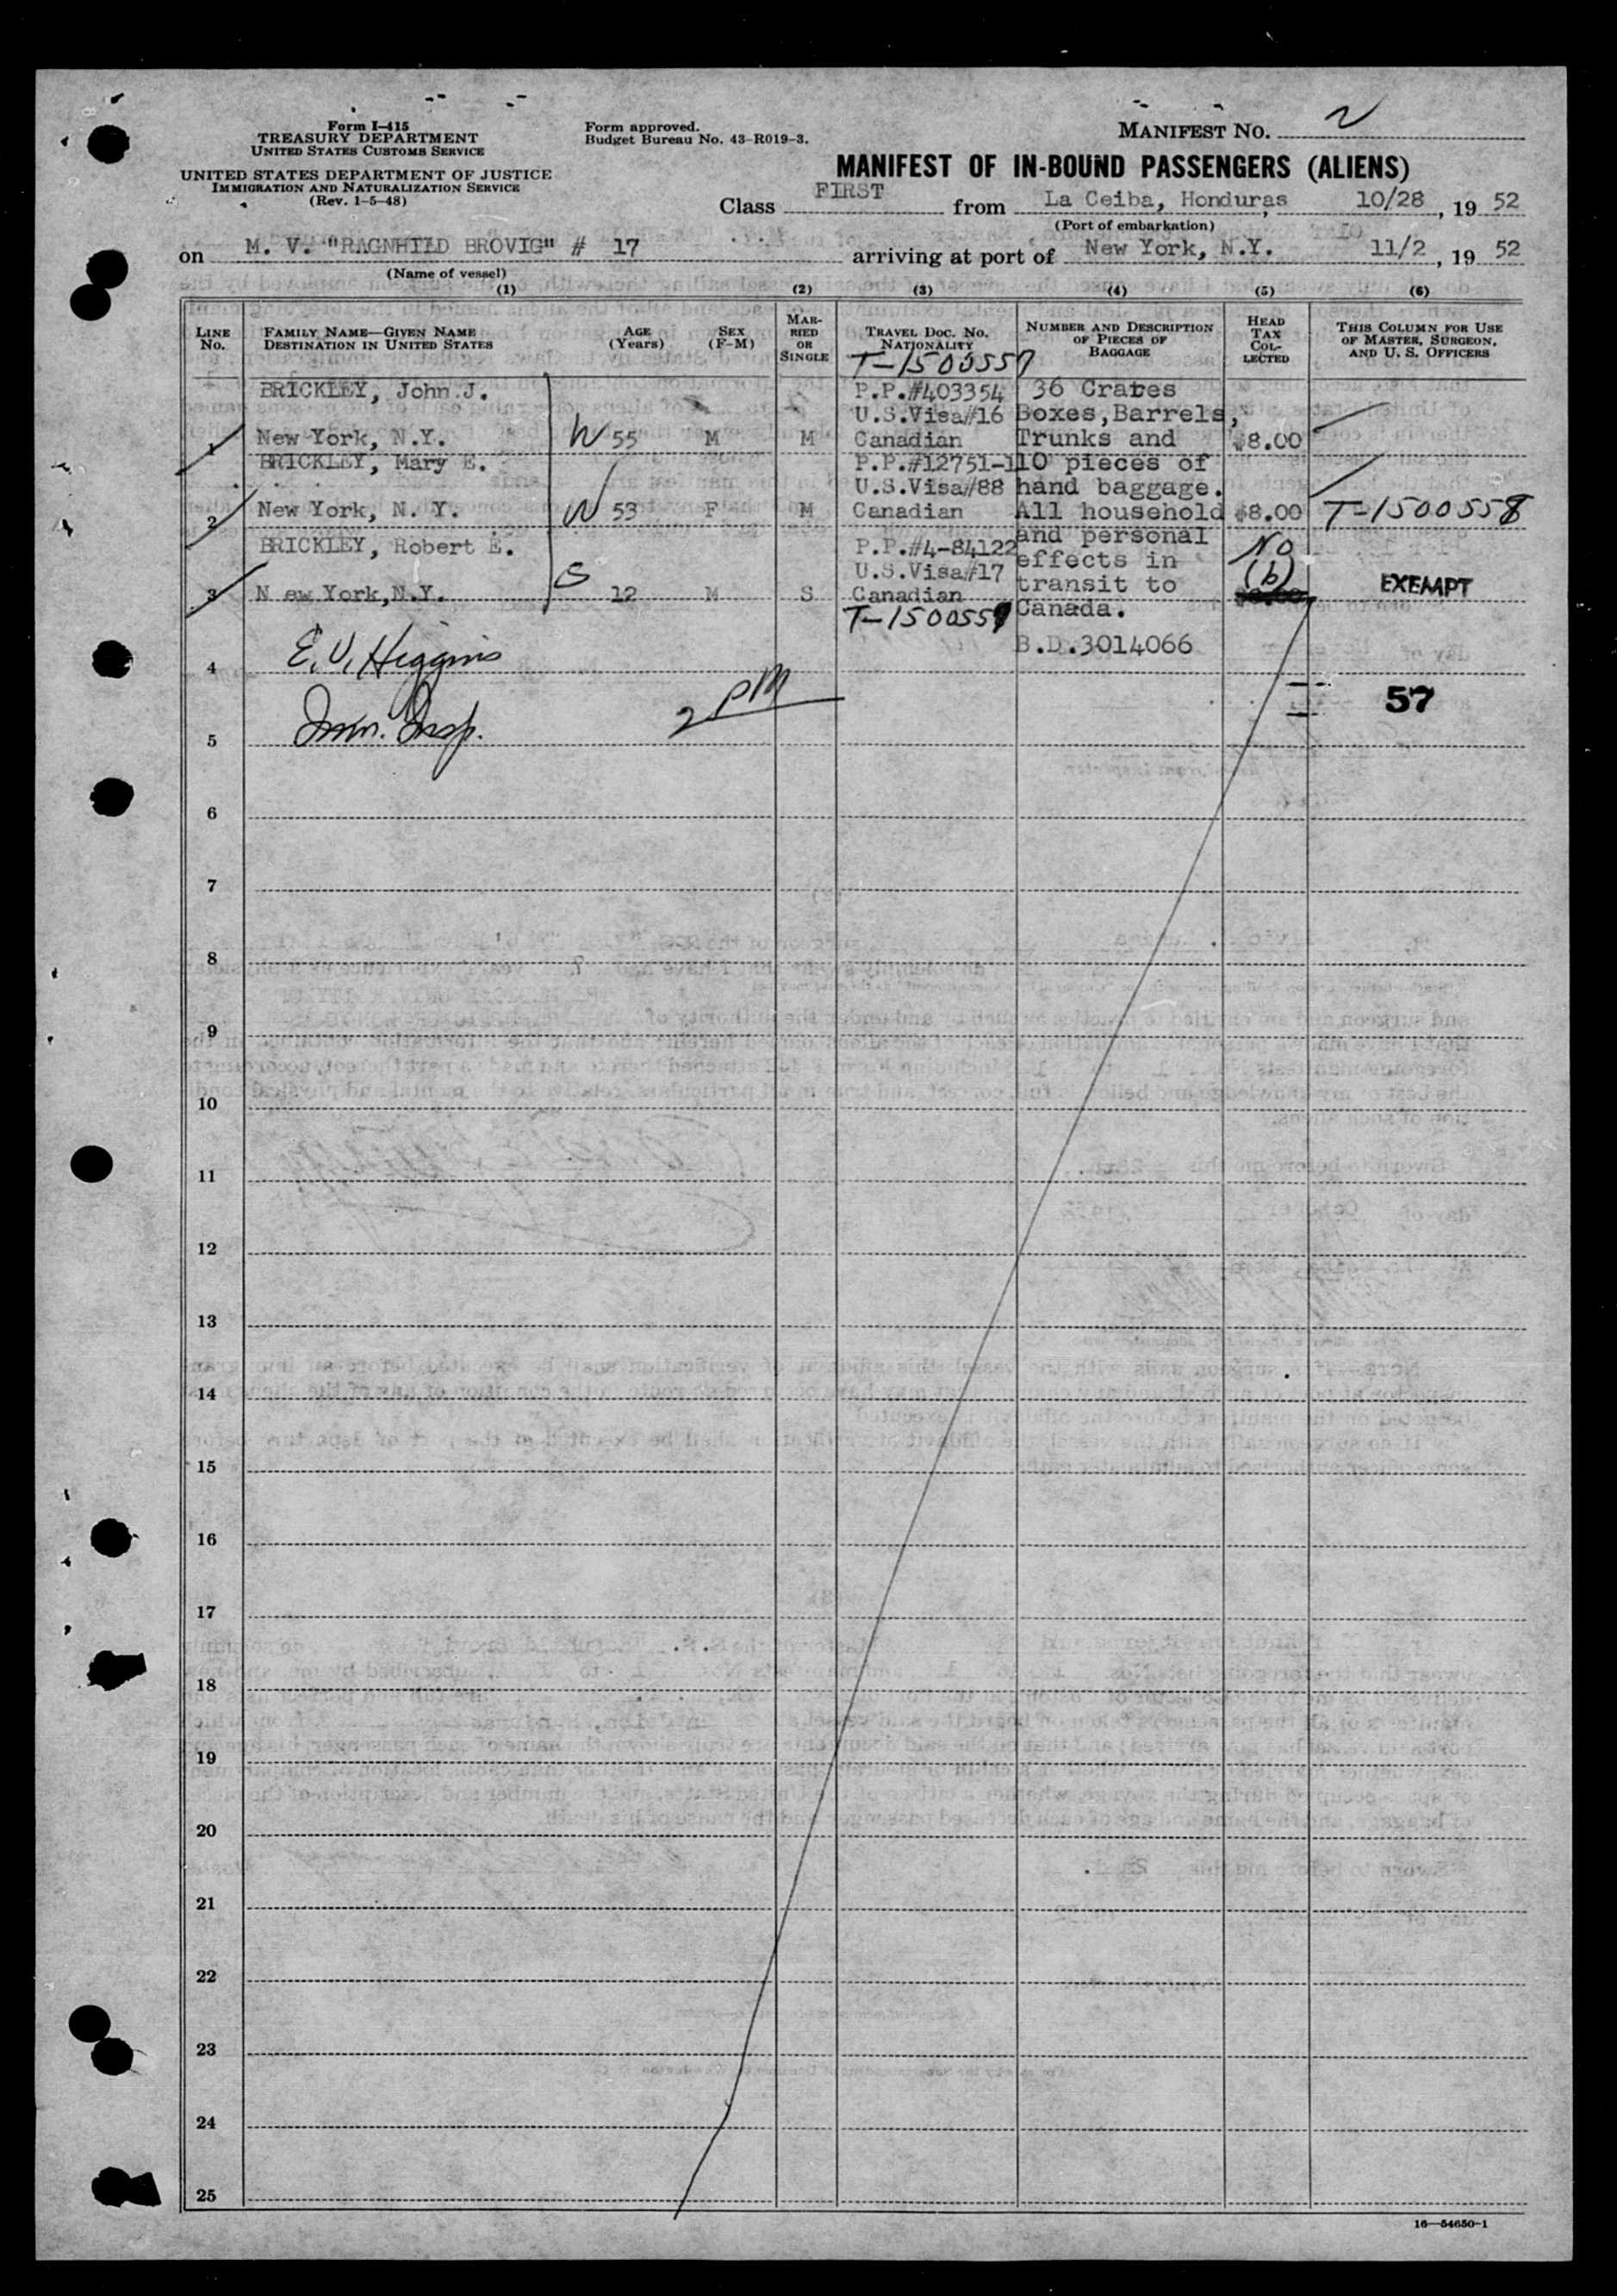 Form I-415
TREASURY DEPARTMENT
UNITED STATES CUSTOMS SERVICE
UNITED STATES DEPARTMENT OF JUSTICE
IMMIGRATION AND NATURALIZATION SERVICE
(Rev. 1-5-48)
Form approved.
Budget Bureau No. 43-R019-3.
MANIFEST NO. 2
MANIFEST OF IN-BOUND PASSENGERS (ALIENS)
Class FIRST from La Ceiba, Honduras, 10/28, 19 52
(Port of embarkation)
on M. V. "RAGNHILD BROVIG" # 17 arriving at port of New York, N.Y. 11/2, 19 52
(Name of vessel)
(1) (2) (3) (4) (5) (6)
LINE NO.
FAMILY NAME—GIVEN NAME
DESTINATION IN UNITED STATES
AGE (Years)
SEX (F-M)
MARRIED OR SINGLE
TRAVEL DOC. NO.
NATIONALITY
NUMBER AND DESCRIPTION
OF PIECES OF
BAGGAGE
HEAD TAX COLLECTED
THIS COLUMN FOR USE
OF MASTER, SURGEON,
AND U. S. OFFICERS
T-1500557
BRICKLEY, John J. P.P.#403354 36 Crates
U.S.Visa#16 Boxes,Barrels,
1 New York, N.Y. W 55 M M Canadian Trunks and $8.00
BRICKLEY, Mary E. P.P.#12751-1 10 pieces of
U.S.Visa#88 hand baggage.
2 New York, N. Y. W 53 F M Canadian All household $8.00 T-1500558
BRICKLEY, Robert E. P.P.#4-84122 and personal No
U.S.Visa#17 effects in (b)
3 N ew York,N.Y. S 12 M S Canadian transit to EXEMPT
T-1500559 Canada.
E. V. Higgins B.D.3014066
4
2 PM 57
Imm. Insp.
5
6
7
8
9
10
11
12
13
14
15
16
17
18
19
20
21
22
23
24
25
16—54650-1